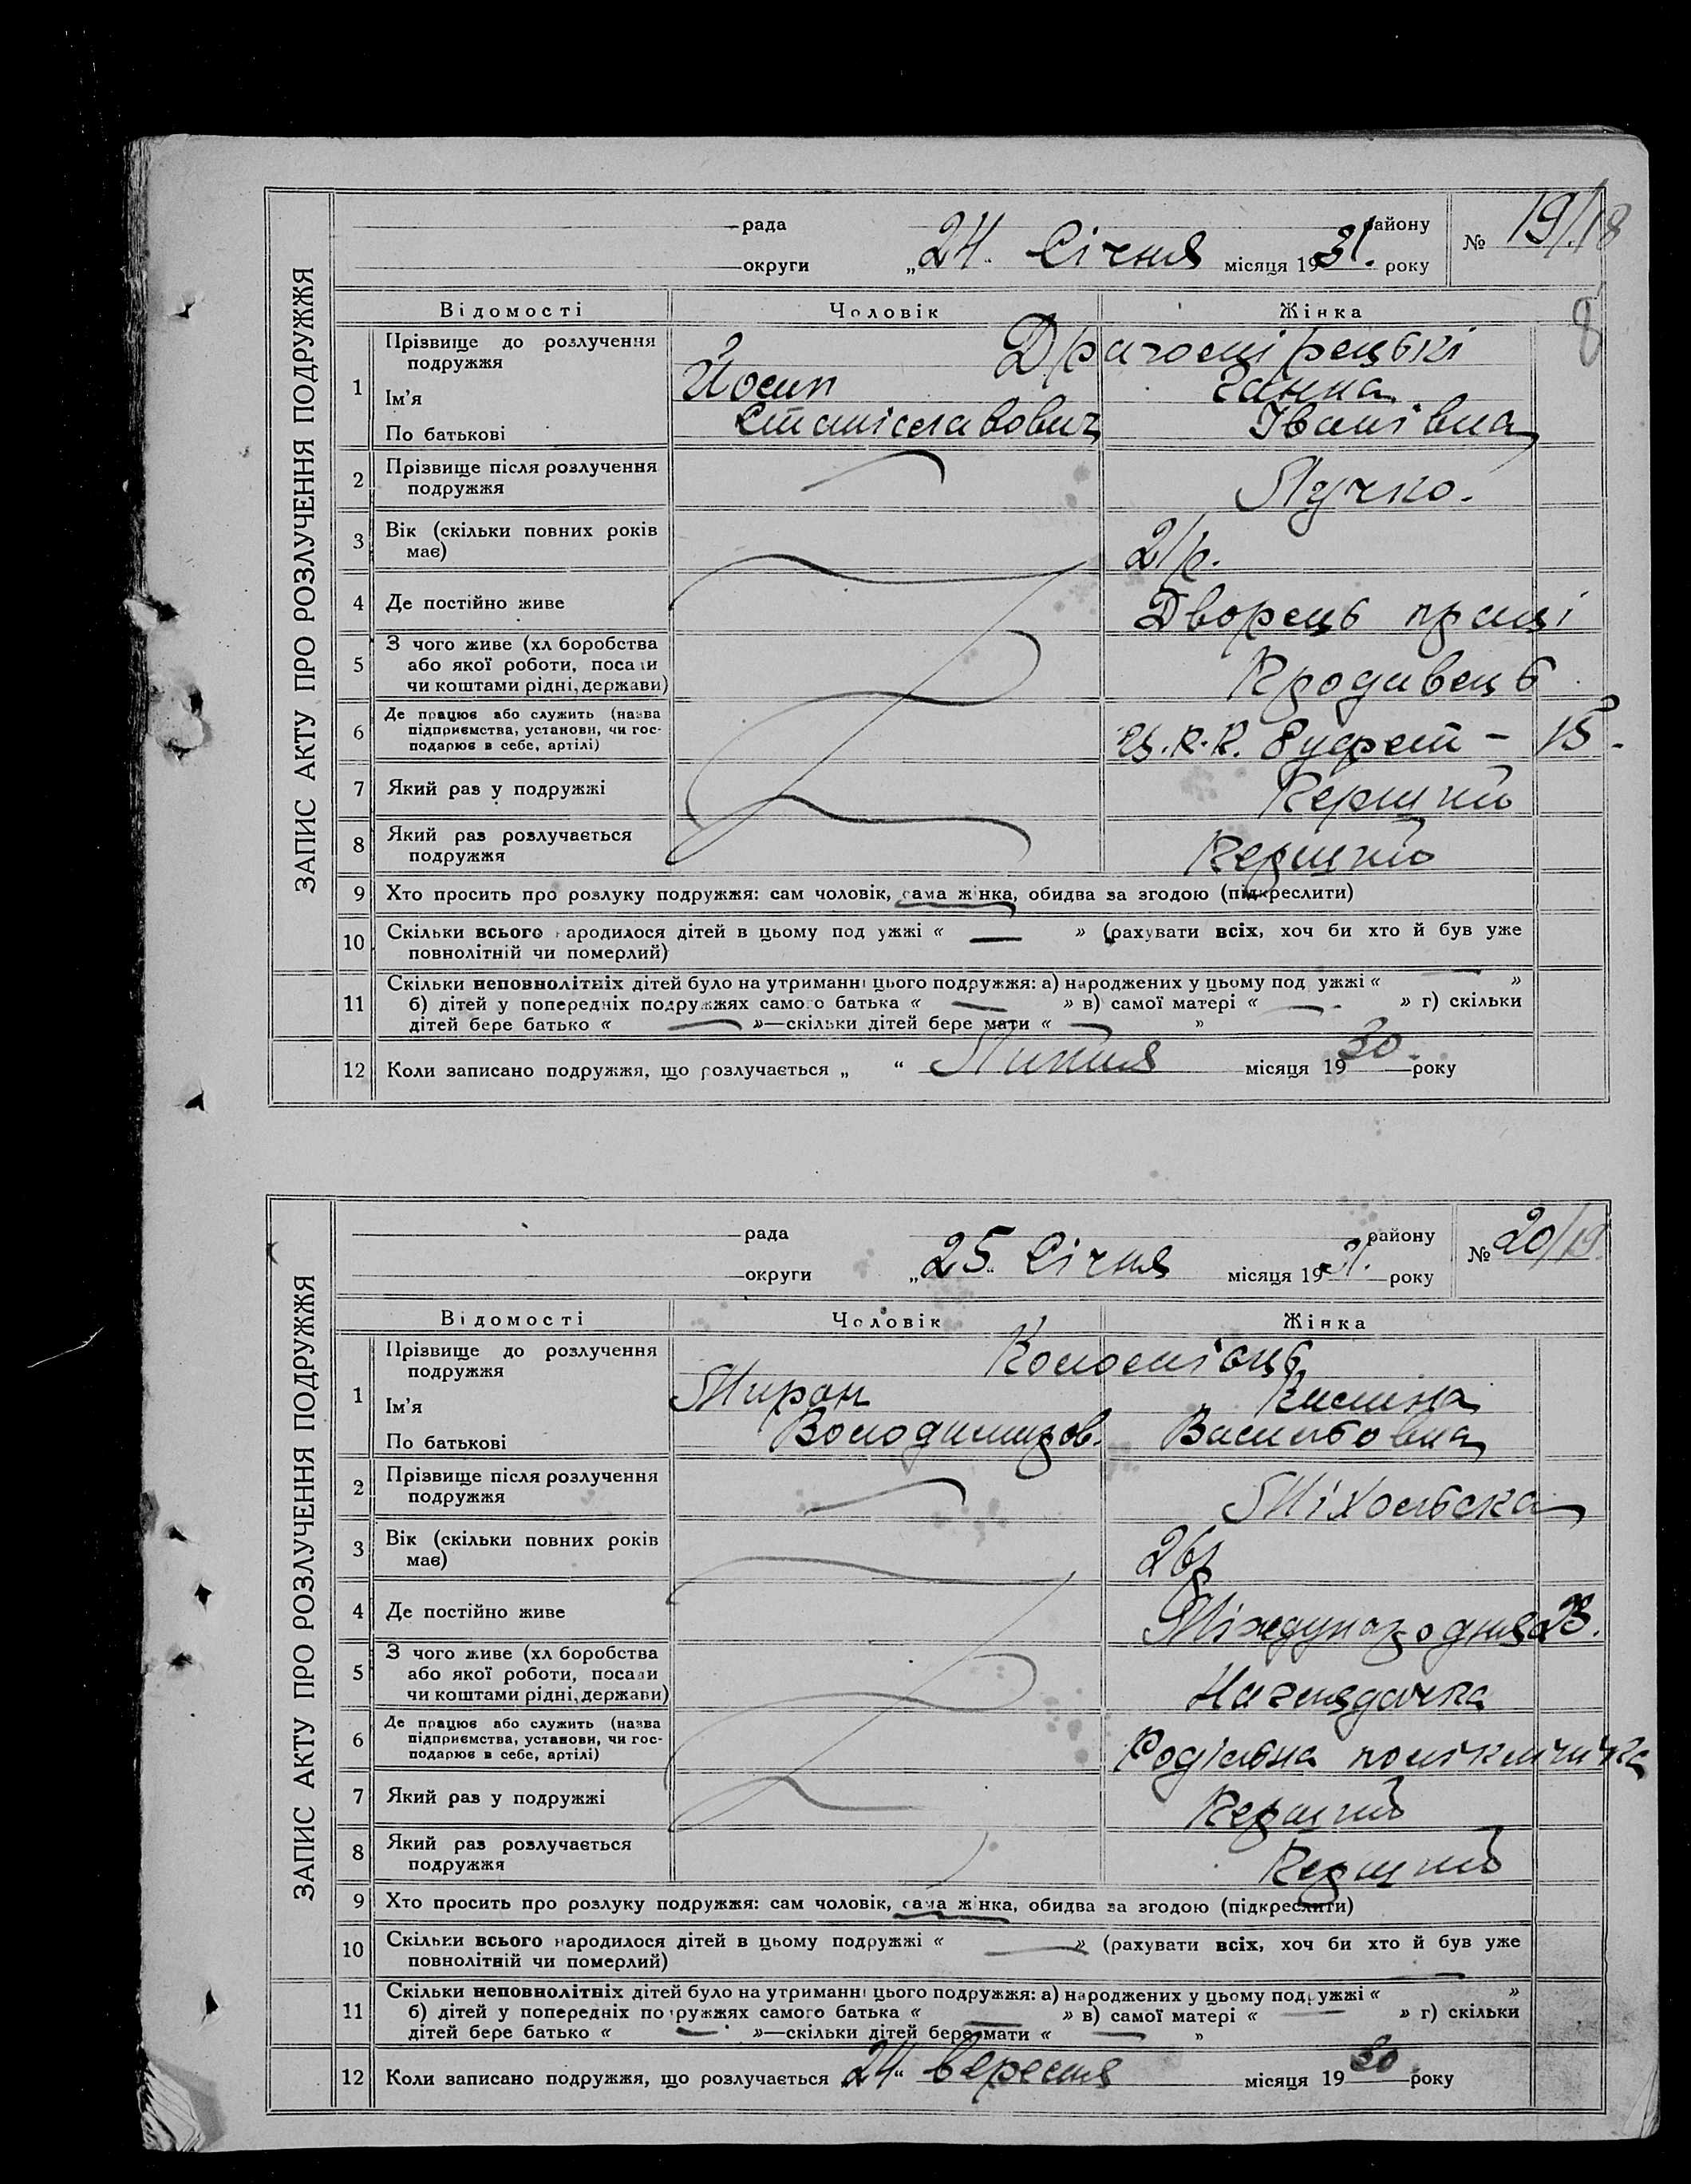 ЗАПИС АКТУ ПРО РОЗЛУЧЕННЯ ПОДРУЖЖЯ
рада району № 19/18
округи „24" Січня місяця 1931. року
8
Відомості Чоловік Жінка
1 Прізвище до розлучення подружжя
Ім'я Йосип Ганна
По батькові Станіславович Іванівна
2 Прізвище після розлучення
подружжя Лучко.
3 Вік (скільки повних років
має) 21 р.
4 Де постійно живе Дворець праці
5 З чого живе (хліборобства
або якої роботи, посади
чи коштами рідні, держави) Продавець
6 Де працює або служить (назва
підприємства, установи, чи гос-
подарює в себе, артілі) Ц.Р.К. Буфет – 15.
7 Який раз у подружжі Перший
8 Який раз розлучається
подружжя Перший
9 Хто просить про розлуку подружжя: сам чоловік, сама жінка, обидва за згодою (підкреслити)
10 Скільки всього народилося дітей в цьому подружжі « — » (рахувати всіх, хоч би хто й був уже
повнолітній чи померлий)
11 Скільки неповнолітніх дітей було на утриманні цього подружжя: а) народжених у цьому подружжі « — »
б) дітей у попередніх подружжях самого батька « — » в) самої матері « — » г) скільки
дітей бере батько « — »—скільки дітей бере мати « — »
12 Коли записано подружжя, що розлучається „ “ Липня місяця 1930. року
ЗАПИС АКТУ ПРО РОЗЛУЧЕННЯ ПОДРУЖЖЯ
рада району № 20/19
округи „25" Січня місяця 1931. року
Відомості Чоловік Жінка
1 Прізвище до розлучення Коломієць
подружжя
Ім'я Мирон
По батькові Володимиров. Васильовна
2 Прізвище після розлучення
подружжя Міхольска
3 Вік (скільки повних років
має) 26 р
4 Де постійно живе Міждународня 23.
5 З чого живе (хліборобства
або якої роботи, посади
чи коштами рідні, держави) Наглядачка
6 Де працює або служить (назва
підприємства, установи, чи гос-
подарює в себе, артілі) поліклініка
7 Який раз у подружжі Перший
8 Який раз розлучається
подружжя Перший
9 Хто просить про розлуку подружжя: сам чоловік, сама жінка, обидва за згодою (підкреслити)
10 Скільки всього народилося дітей в цьому подружжі « — » (рахувати всіх, хоч би хто й був уже
повнолітній чи померлий)
11 Скільки неповнолітніх дітей було на утриманні цього подружжя: а) народжених у цьому подружжі « — »
б) дітей у попередніх подружжях самого батька « — » в) самої матері « — » г) скільки
дітей бере батько « — »—скільки дітей бере мати « — »
12 Коли записано подружжя, що розлучається 24“ вересня місяця 1930. року